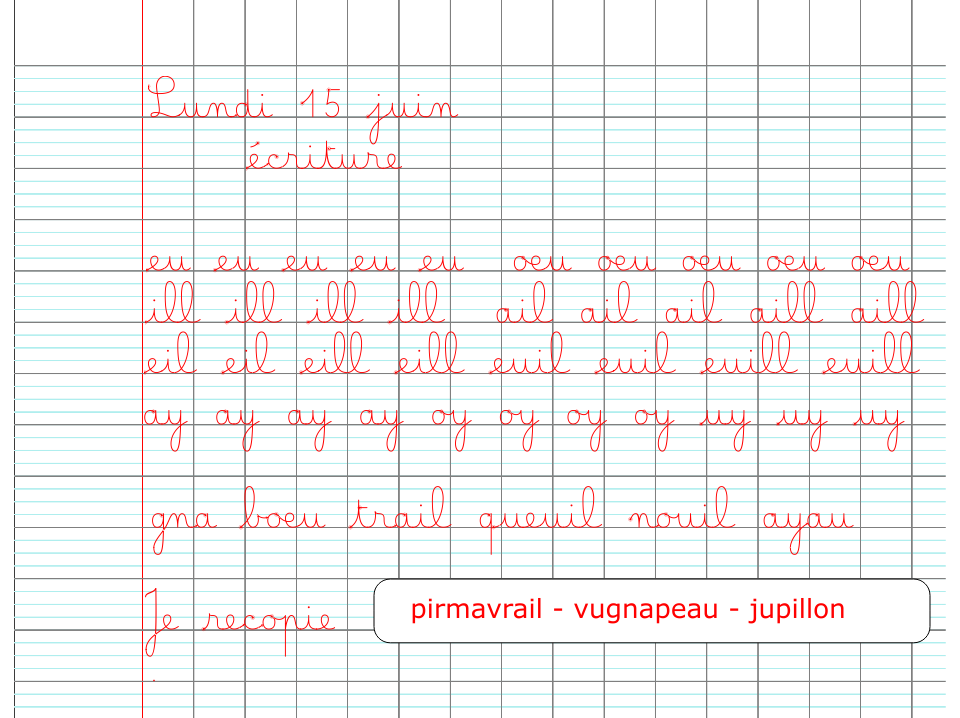 Lundi 15 juin
écriture
eu eu eu eu eu oeu oeu oeu oeu oeu
ill ill ill ill ail ail ail aill aill
eil eil eill eill euil euil euill euill
ay ay ay ay oy oy oy oy uy uy uy
gna boeu trail queuil nouil ayau
Je recopie
pirmavrail - vugnapeau - jupillon
.